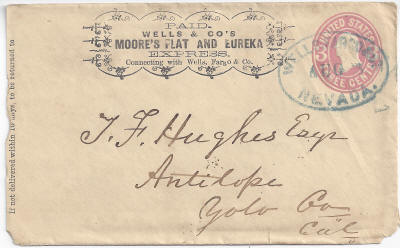 PAID.
WELLS & CO'S
MOORE'S FLAT AND EUREKA
EXPRESS,
Connecting with Wells, Fargo & Co.
UNITED STATES
CENTS
WELLS, FARGO & CO
AUG
NEVADA.
If not delivered within 10 days, to be returned to
T. F. Hughes Esqr
Antilope
Yolo Co
Cal